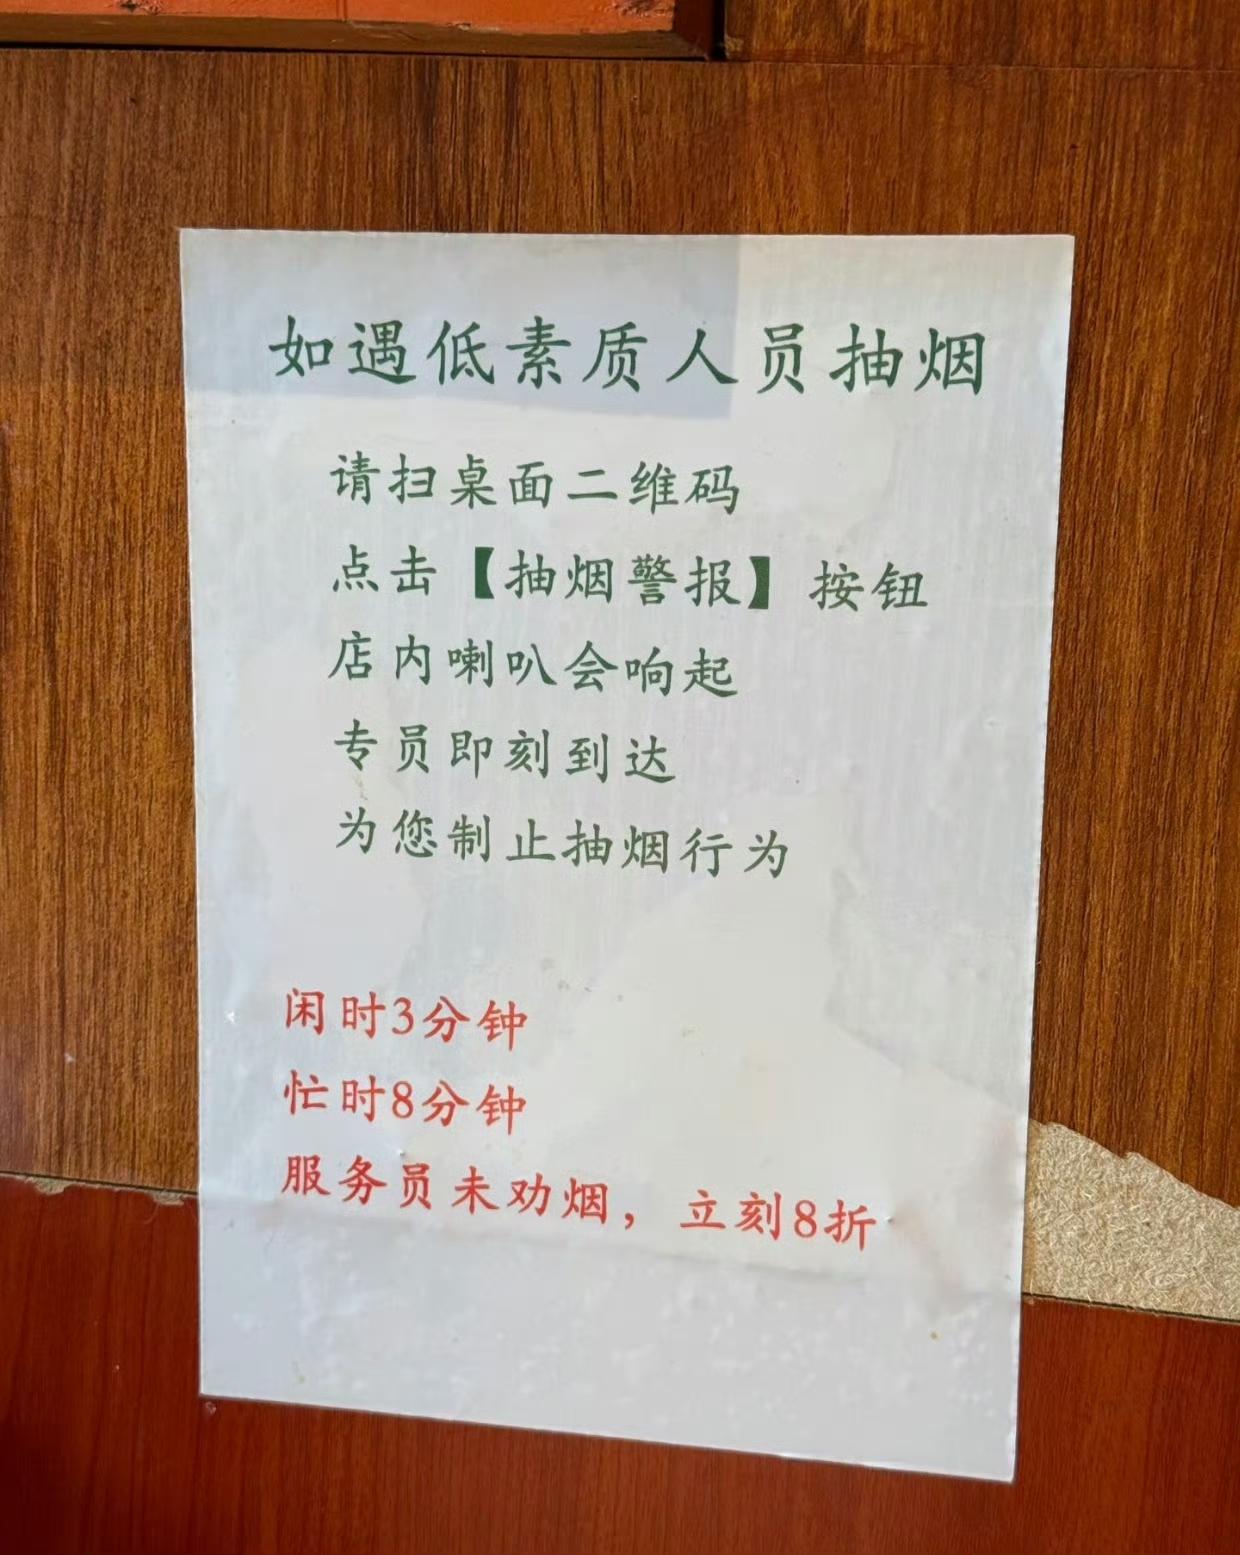 如遇低素质人员抽烟
请扫桌面二维码
点击【抽烟警报】按钮
店内喇叭会响起
专员即刻到达
为您制止抽烟行为
闲时3分钟
忙时8分钟
服务员未劝烟，立刻8折